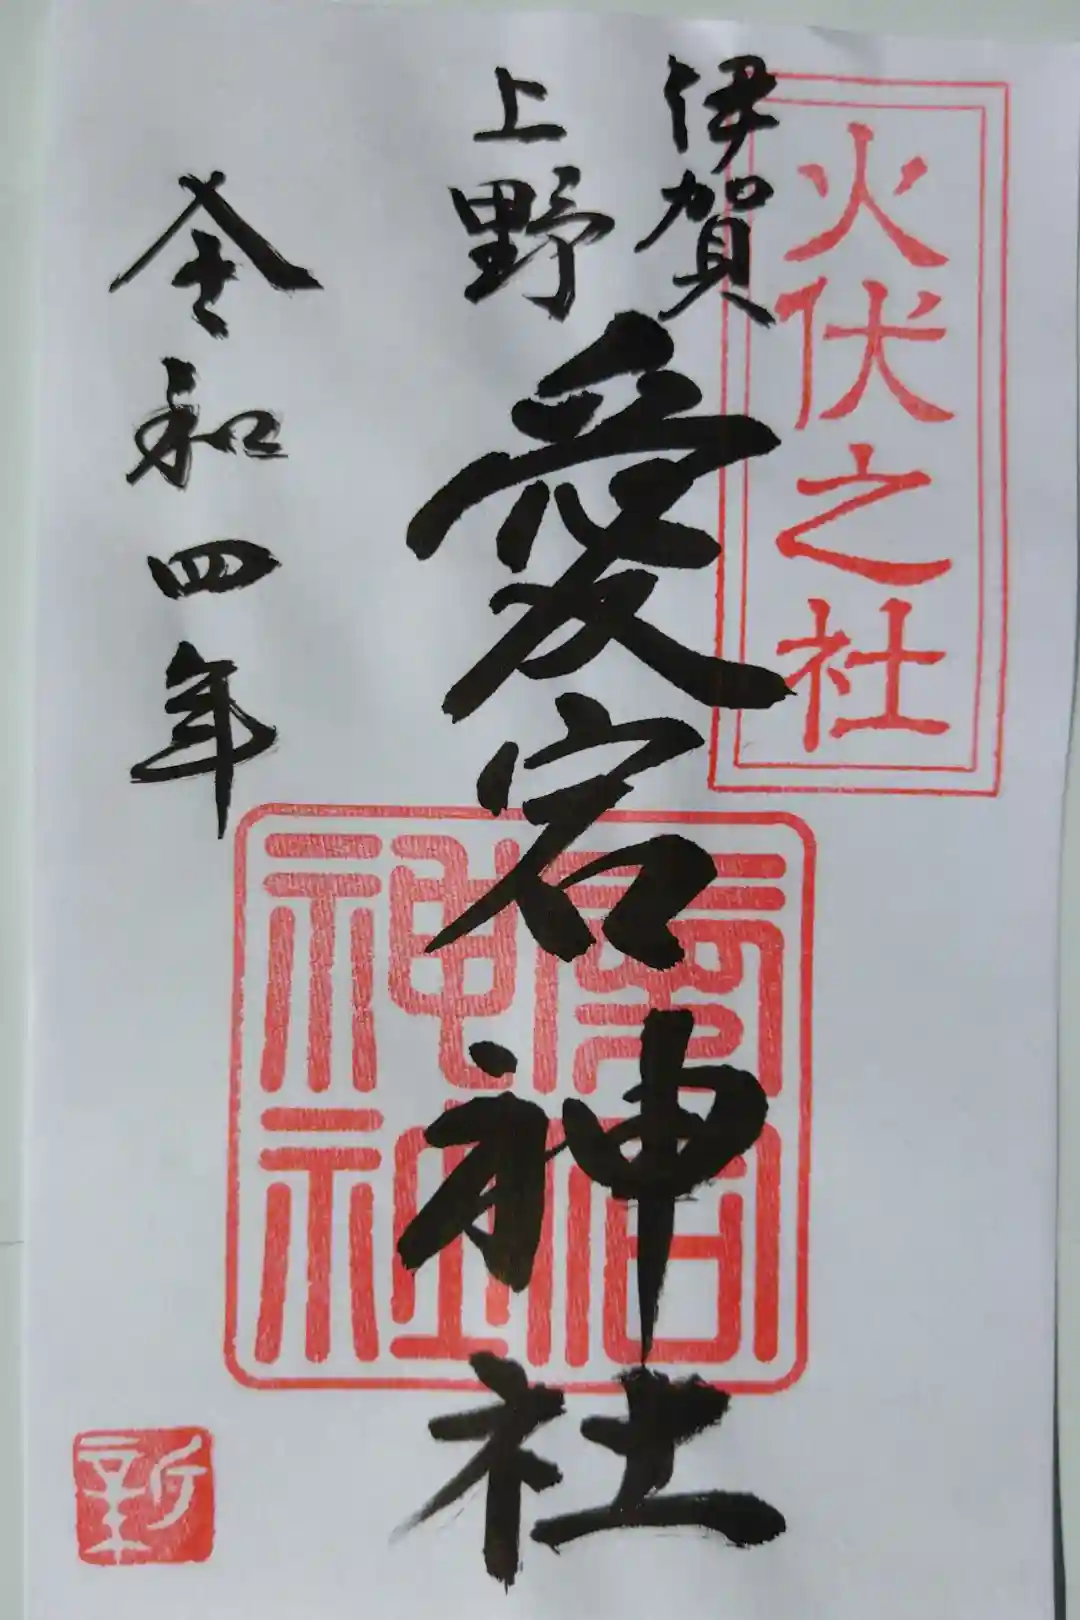 火伏之社
伊賀
上野
愛宕神社
令和四年
愛宕
神社
新